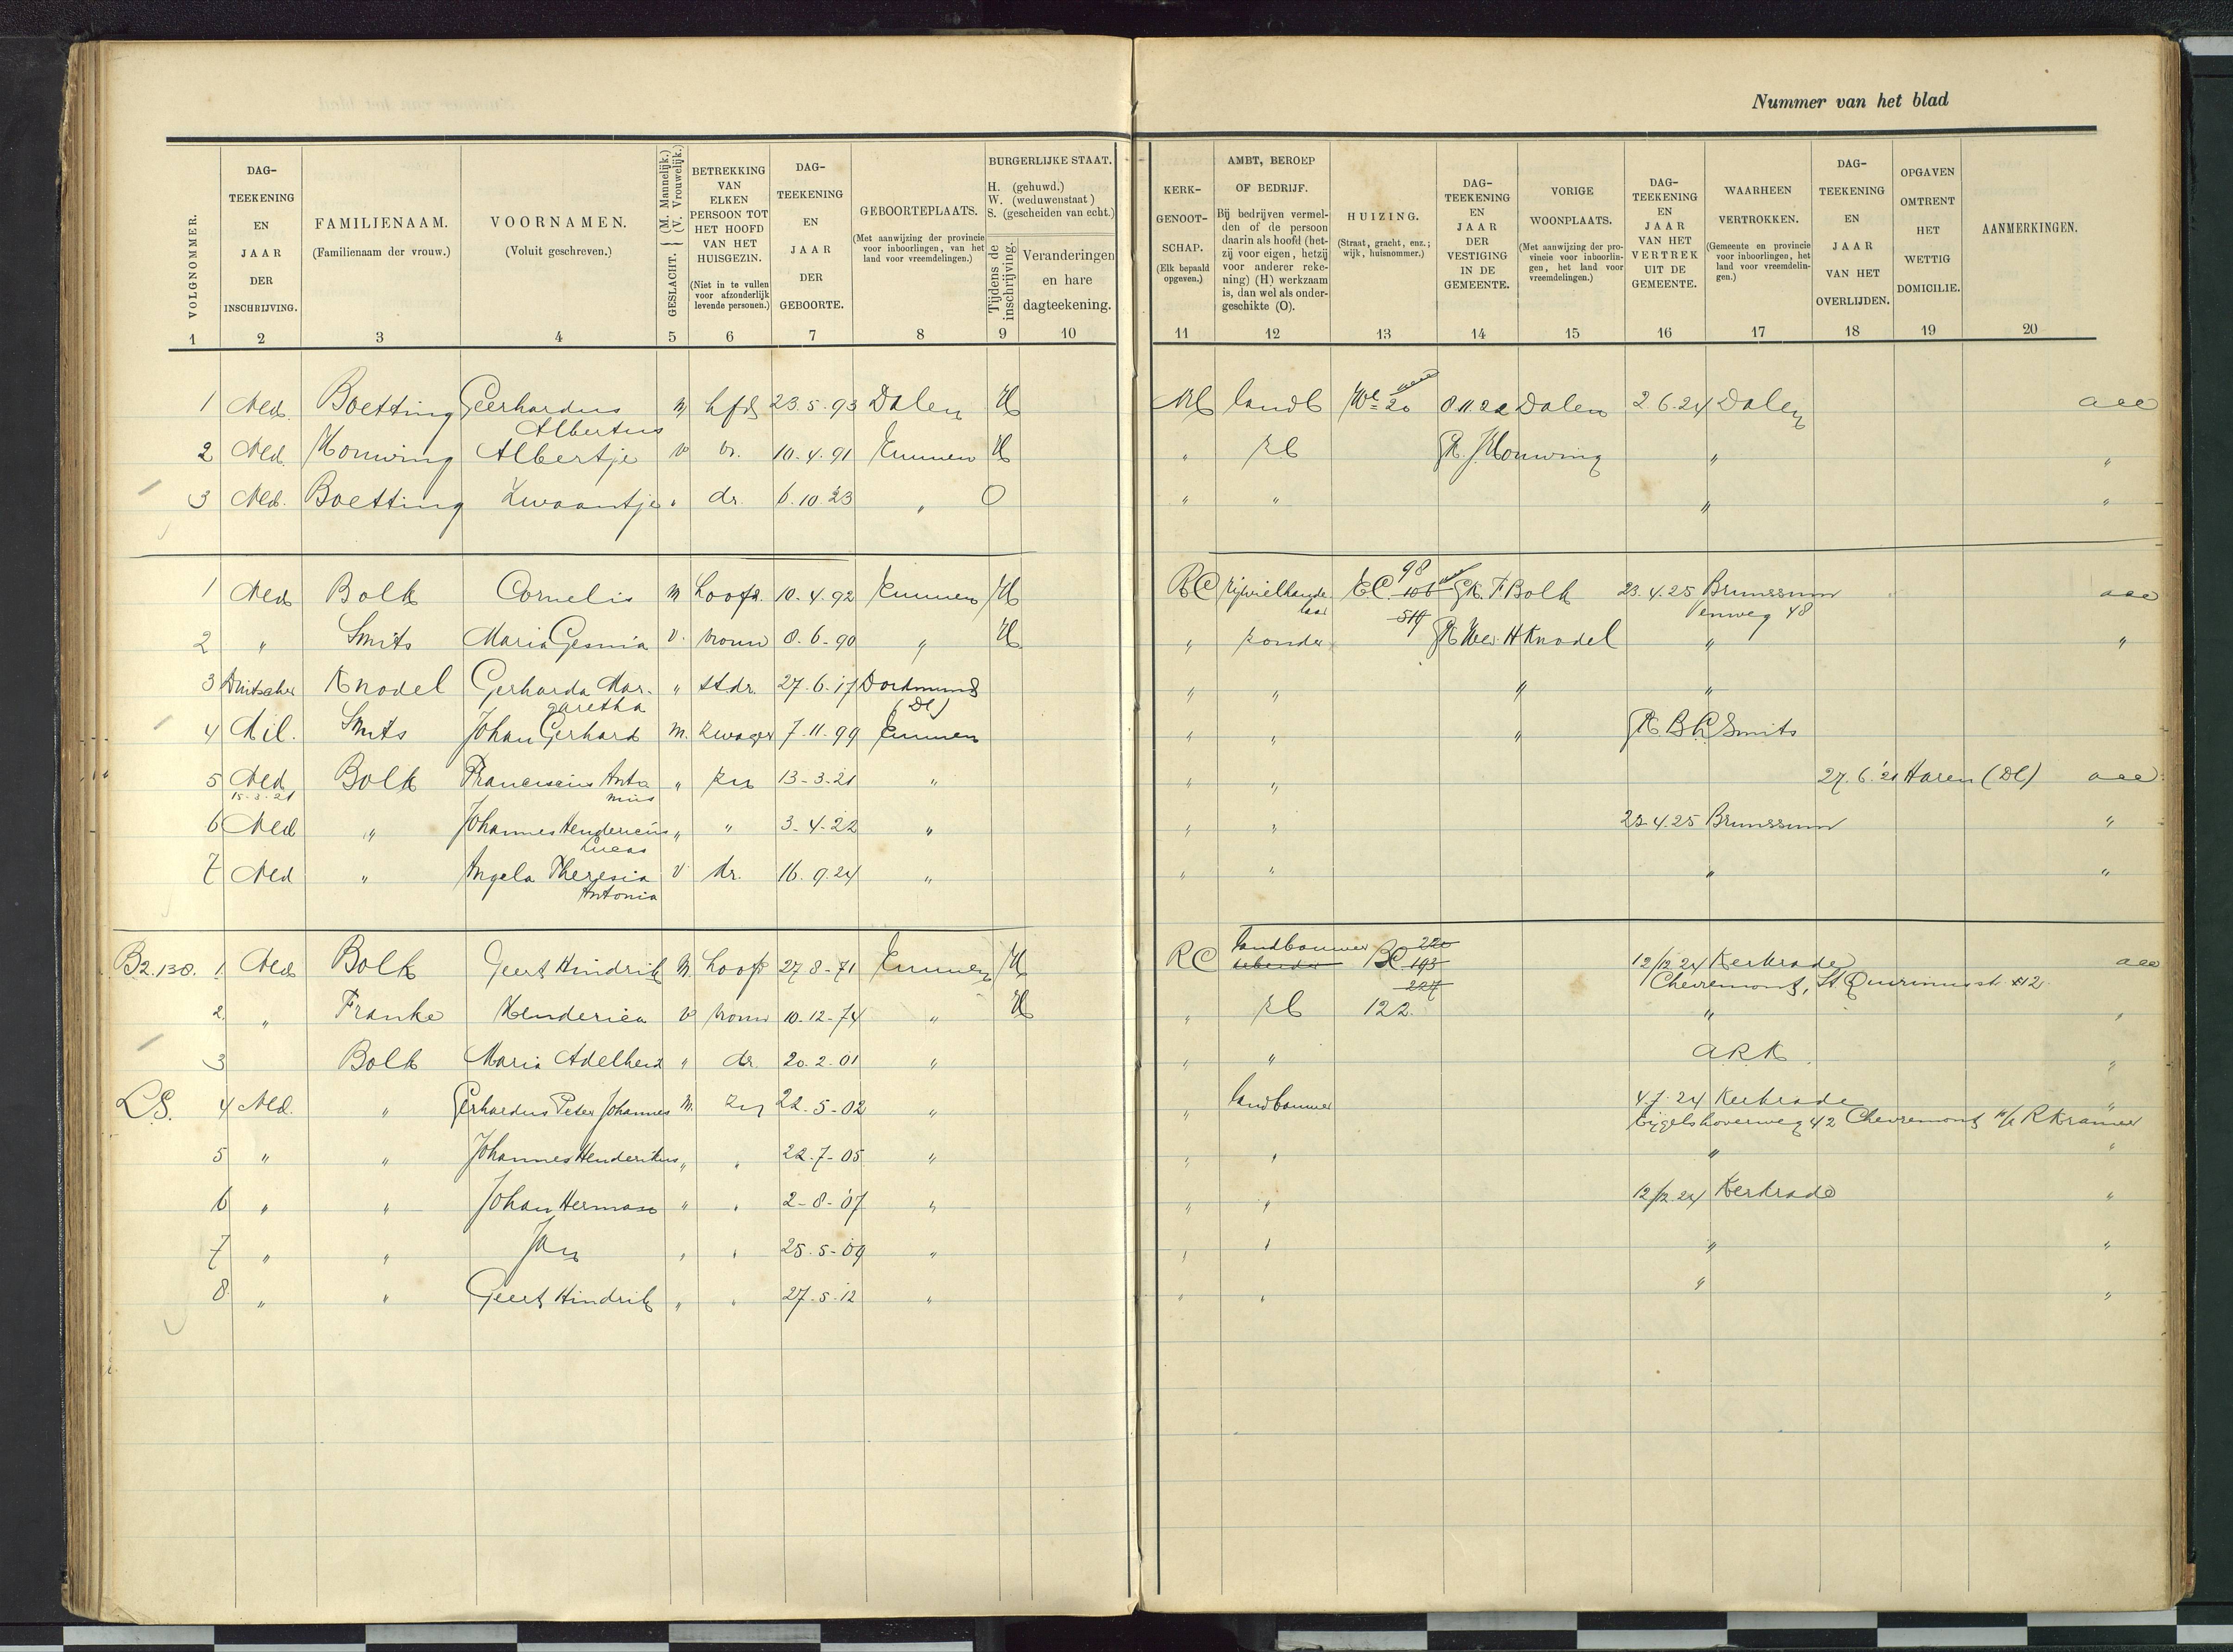 Nummer van het blad
VOLGNOMMER. 1
DAG-TEEKENING EN JAAR DER INSCHRIJVING. 2
FAMILIENAAM. (Familienaam der vrouw.) 3
VOORNAMEN. (Voluit geschreven.) 4
GESLACHT. (M. Mannelijk.) (V. Vrouwelijk.) 5
BETREKKING VAN ELKEN PERSOON TOT HET HOOFD VAN HET HUISGEZIN. (Niet in te vullen voor afzonderlijk levende personen.) 6
DAG-TEEKENING EN JAAR DER GEBOORTE. 7
GEBOORTEPLAATS. (Met aanwijzing der provincie voor inboorlingen, van het land voor vreemdelingen.) 8
BURGERLIJKE STAAT. H. (gehuwd.) W. (weduwenstaat) S. (gescheiden van echt.)
Tijdens de inschrijving. 9
Veranderingen en hare dagteekening. 10
KERK-GENOOT-SCHAP. (Elk bepaald opgeven.) 11
AMBT, BEROEP OF BEDRIJF. Bij bedrijven vermelden of de persoon daarin als hoofd (hetzij voor eigen, hetzij voor anderer rekening) (H) werkzaam is, dan wel als ondergeschikte (O). 12
HUIZING. (Straat, gracht, enz.; wijk, huisnommer.) 13
DAG-TEEKENING EN JAAR DER VESTIGING IN DE GEMEENTE. 14
VORIGE WOONPLAATS. (Met aanwijzing der provincie voor inboorlingen, het land voor vreemdelingen.) 15
DAG-TEEKENING EN JAAR VAN HET VERTREK UIT DE GEMEENTE. 16
WAARHEEN VERTROKKEN. (Gemeente en provincie voor inboorlingen, het land voor vreemdelingen.) 17
DAG-TEEKENING EN JAAR VAN HET OVERLIJDEN. 18
OPGAVEN OMTRENT HET WETTIG DOMICILIE. 19
AANMERKINGEN. 20
1 Ned. Boetting Geerhardus Albertus m hfd 23.5.93 Dalen H NH landb 20 8.11.22 Dalen 2.6.24 Dalen
2 Ned. Houwing Albertje v vr. 10.4.91 Emmen H " zb Gk. J Houwing " "
3 Ned. Boetting Zwaantje " dr. 6.10.23 " O " " " "
1 Ned Bolk Cornelis m hoofd. 10.4.92 Emmen H RC rijwielhandelaar EC 98 106 514 Gk. F Bolk 23.4.25 Brunssum
Venweg 48
2 " Smits Maria Gesina v. vrouw 8-6-90 " H " zonder Gk Wed H Knodel " "
3 Duitscher Knodel Gerharda Margaretha " stdr. 27.6.17 Dortmund (Dl) " " " "
4 Mil. Smits Johan Gerhard m. zwager 7.11.99 Emmen " " " Gk B.H. Smits
5 Ned 15-3-21 Bolk Franciscus Antonius " zn 13-3-21 " " " 27.6.'21 Haren (Dl)
6 Ned " Johannes Hendericus Lucas " " 3-4-22 " " " 23.4.25 Brunssum "
7 Ned " Angela Theresia Antonia v dr. 16.9.24 " " " " "
B2.130. 1 Ned Bolk Geert Hindrik M. hoofd 27-8-71 Emmen H RC landbouwer arbeider BC 220 193 227 12/12 24 Kerkrade
Chevremont, St. Quirinusst. 12
2 " Franke Henderica v vrouw 10-12-74 " H " zb 122. " "
3 Bolk Maria Adelheid " dr. 20-2-01 " " " ARK. "
L.S. 4 Ned. " Gerhardus Peter Johannes M. zn 22-5-02 " " landbouwer 4.7.24 Kerkrade "
Eijgelshoverweg 42 Chevremont p/a R Kramer
5 " " Johannes Henderikus " " 22-7-05 " " " " "
6 " " Johan Herman " " 2-8-'07 " " " 12/12 24 Kerkrade "
7 " " Jan " " 25-5-09 " " " " "
8 " " Geert Hindrik " " 27-5-12 " " " " "